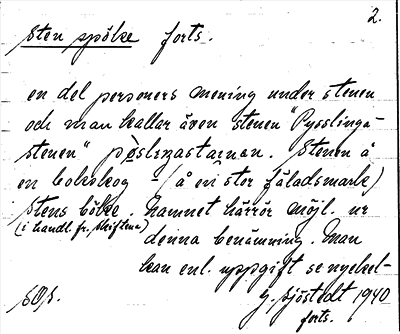 2.
Sten spöke forts.
en del personers mening under stenen
och man kallar även stenen "Pysslinga-
stenen" pøslingastainan. Stenen å
en bokskog - (å en stor fäladsmark)
Stens böke. Namnet härrör möjl. ur
(i handl. fr. skiftena)
denna benämning. Man
kan enl. uppgift se nyckel-
G. Sjöstedt 1940
forts.